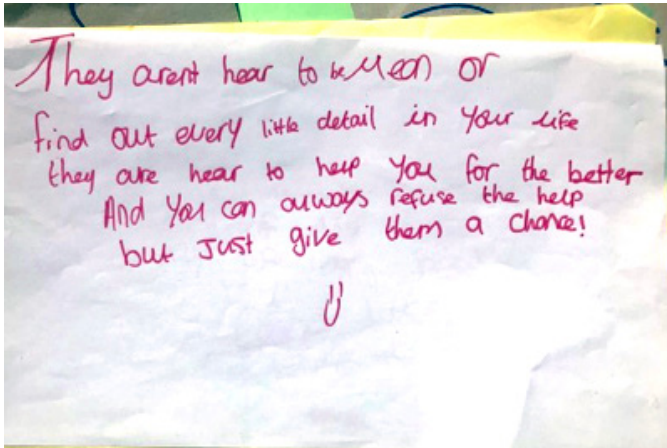 They arent hear to be Mean or
find out every little detail in your life
they are hear to help you for the better
And you can always refuse the help
but Just give them a chance!